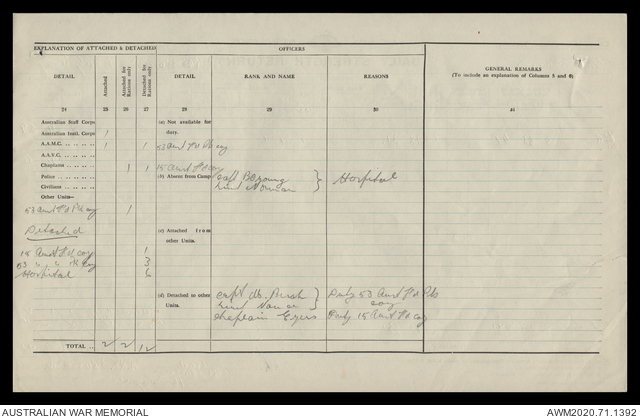 EXPLANATION OF ATTACHED & DETACHED
OFFICERS
GENERAL REMARKS
(To include an explanation of Columns 5 and 6)
DETAIL
Attached
Attached for Rations only
Detached for Rations only
DETAIL
RANK AND NAME
REASONS
24
25
26
27
28
29
30
31
Australian Staff Corps
(a) Not available for duty.
Australian Instl. Corps 1
A.A.M.C. 1 1 53 Aust Fd Pk coy
A.A.V.C.
Chaplains 1 1 15 Aust Fd coy
Police
(b) Absent from Camp
Capt
Hospital
Civilians
Lieut Norman
Other Units—
53 Aust Fd Pk coy 1
Detached
(c) Attached from other Units.
15 Aust Fd coy 1
53 " " Pk coy 3
Hospital 6
(d) Detached to other Units.
Capt Bush } Duty 53 Aust Fd Pk coy
Lieut
Chaplain Duty 15 Aust Fd coy
TOTAL .. 2 2 12
AUSTRALIAN WAR MEMORIAL
AWM2020.71.1392